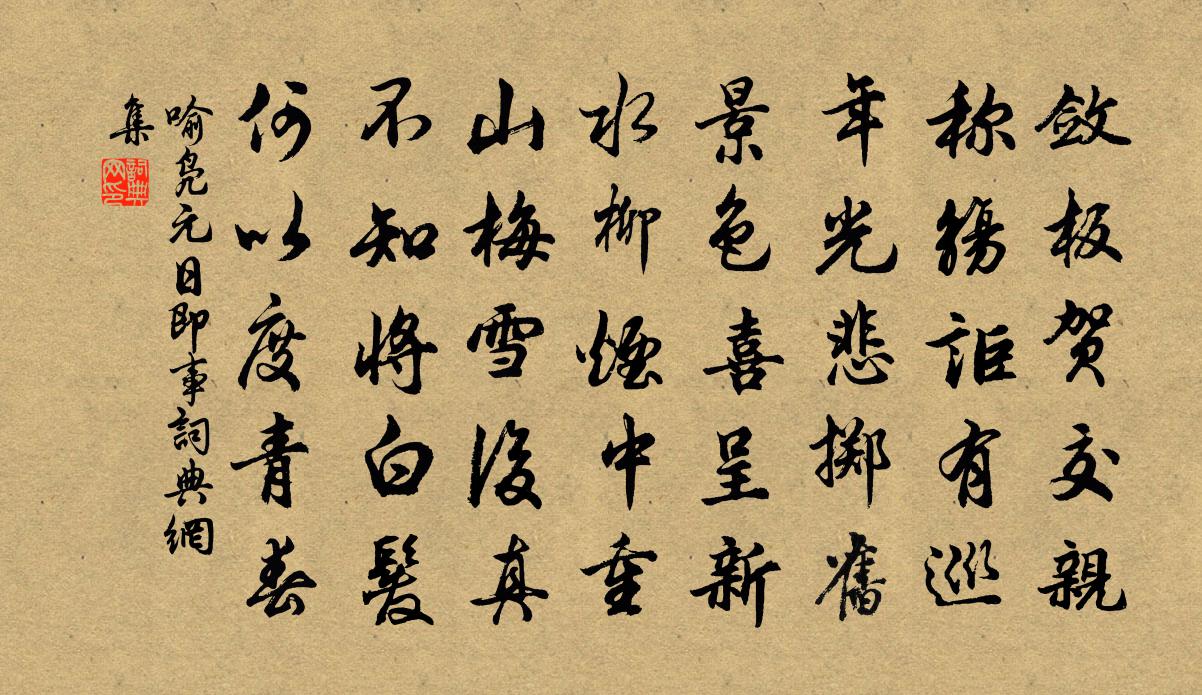 斂板贺交親
称觴詎有巡
年光悲掷舊
景色喜呈新
水柳煙中重
山梅雪後真
不知将白髮
何以度青春
喻凫元日即事詞典網
集
詞典
网印